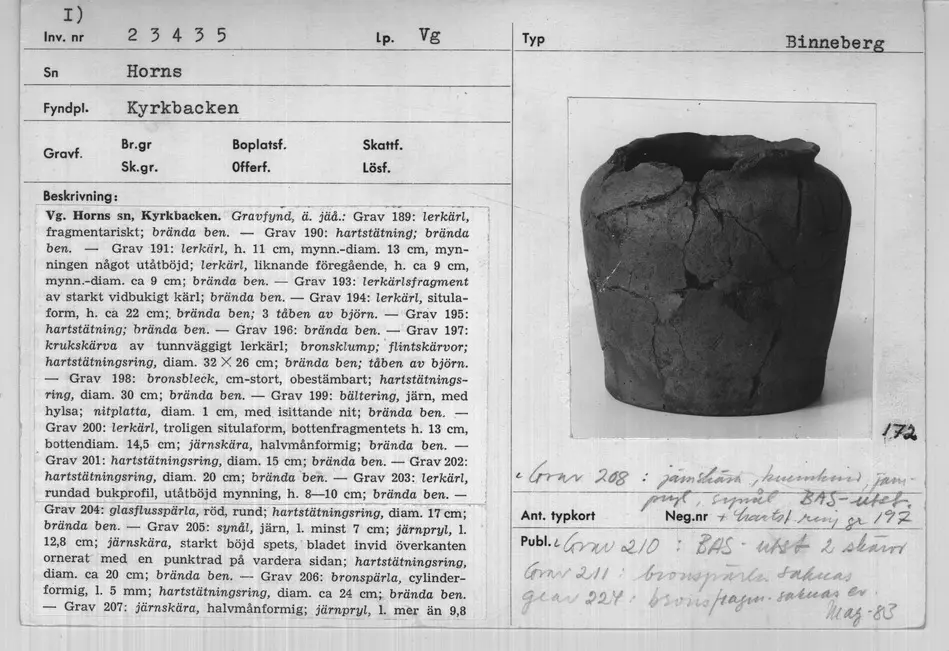 I)
Inv. nr 2 3 4 3 5 Lp. Vg
Sn Horns
Fyndpl. Kyrkbacken
Gravf. Br.gr Boplatsf. Skattf.
Sk.gr. Offerf. Lösf.
Beskrivning:
Vg. Horns sn, Kyrkbacken. Gravfynd, ä. jäå.: Grav 189: lerkärl,
fragmentariskt; brända ben. — Grav 190: hartstätning; brända
ben. — Grav 191: lerkärl, h. 11 cm, mynn.-diam. 13 cm, myn-
ningen något utåtböjd; lerkärl, liknande föregående, h. ca 9 cm,
mynn.-diam. ca 9 cm; brända ben. — Grav 193: lerkärlsfragment
av starkt vidbukigt kärl; brända ben. — Grav 194: lerkärl, situla-
form, h. ca 22 cm; brända ben; 3 tåben av björn. — Grav 195:
hartstätning; brända ben. — Grav 196: brända ben. — Grav 197:
krukskärva av tunnväggigt lerkärl; bronsklump; flintskärvor;
hartstätningsring, diam. 32 × 26 cm; brända ben; tåben av björn.
— Grav 198: bronsbleck, cm-stort, obestämbart; hartstätnings-
ring, diam. 30 cm; brända ben. — Grav 199: bältering, järn, med
hylsa; nitplatta, diam. 1 cm, med isittande nit; brända ben. —
Grav 200: lerkärl, troligen situlaform, bottenfragmentets h. 13 cm,
bottendiam. 14,5 cm; järnskära, halvmånformig; brända ben. —
Grav 201: hartstätningsring, diam. 15 cm; brända ben. — Grav 202:
hartstätningsring, diam. 20 cm; brända ben. — Grav 203: lerkärl,
rundad bukprofil, utåtböjd mynning, h. 8—10 cm; brända ben. —
Grav 204: glasflusspärla, röd, rund; hartstätningsring, diam. 17 cm;
brända ben. — Grav 205: synål, järn, l. minst 7 cm; järnpryl, l.
12,8 cm; järnskära, starkt böjd spets, bladet invid överkanten
ornerat med en punktrad på vardera sidan; hartstätningsring,
diam. ca 20 cm; brända ben. — Grav 206: bronspärla, cylinder-
formig, l. 5 mm; hartstätningsring, diam. ca 24 cm; brända ben.
— Grav 207: järnskära, halvmånformig; järnpryl, l. mer än 9,8
Typ Binneberg
172
Grav 208 : järnskära, järn-
pryl, synål BAS-utst.
Ant. typkort Neg.nr + hartst. ring gr 197
Publ. Grav 210 : BAS - utst 2 skäror
Grav 211 : bronspärla saknas
grav 224 : bronsfragm. saknas
Maj -83